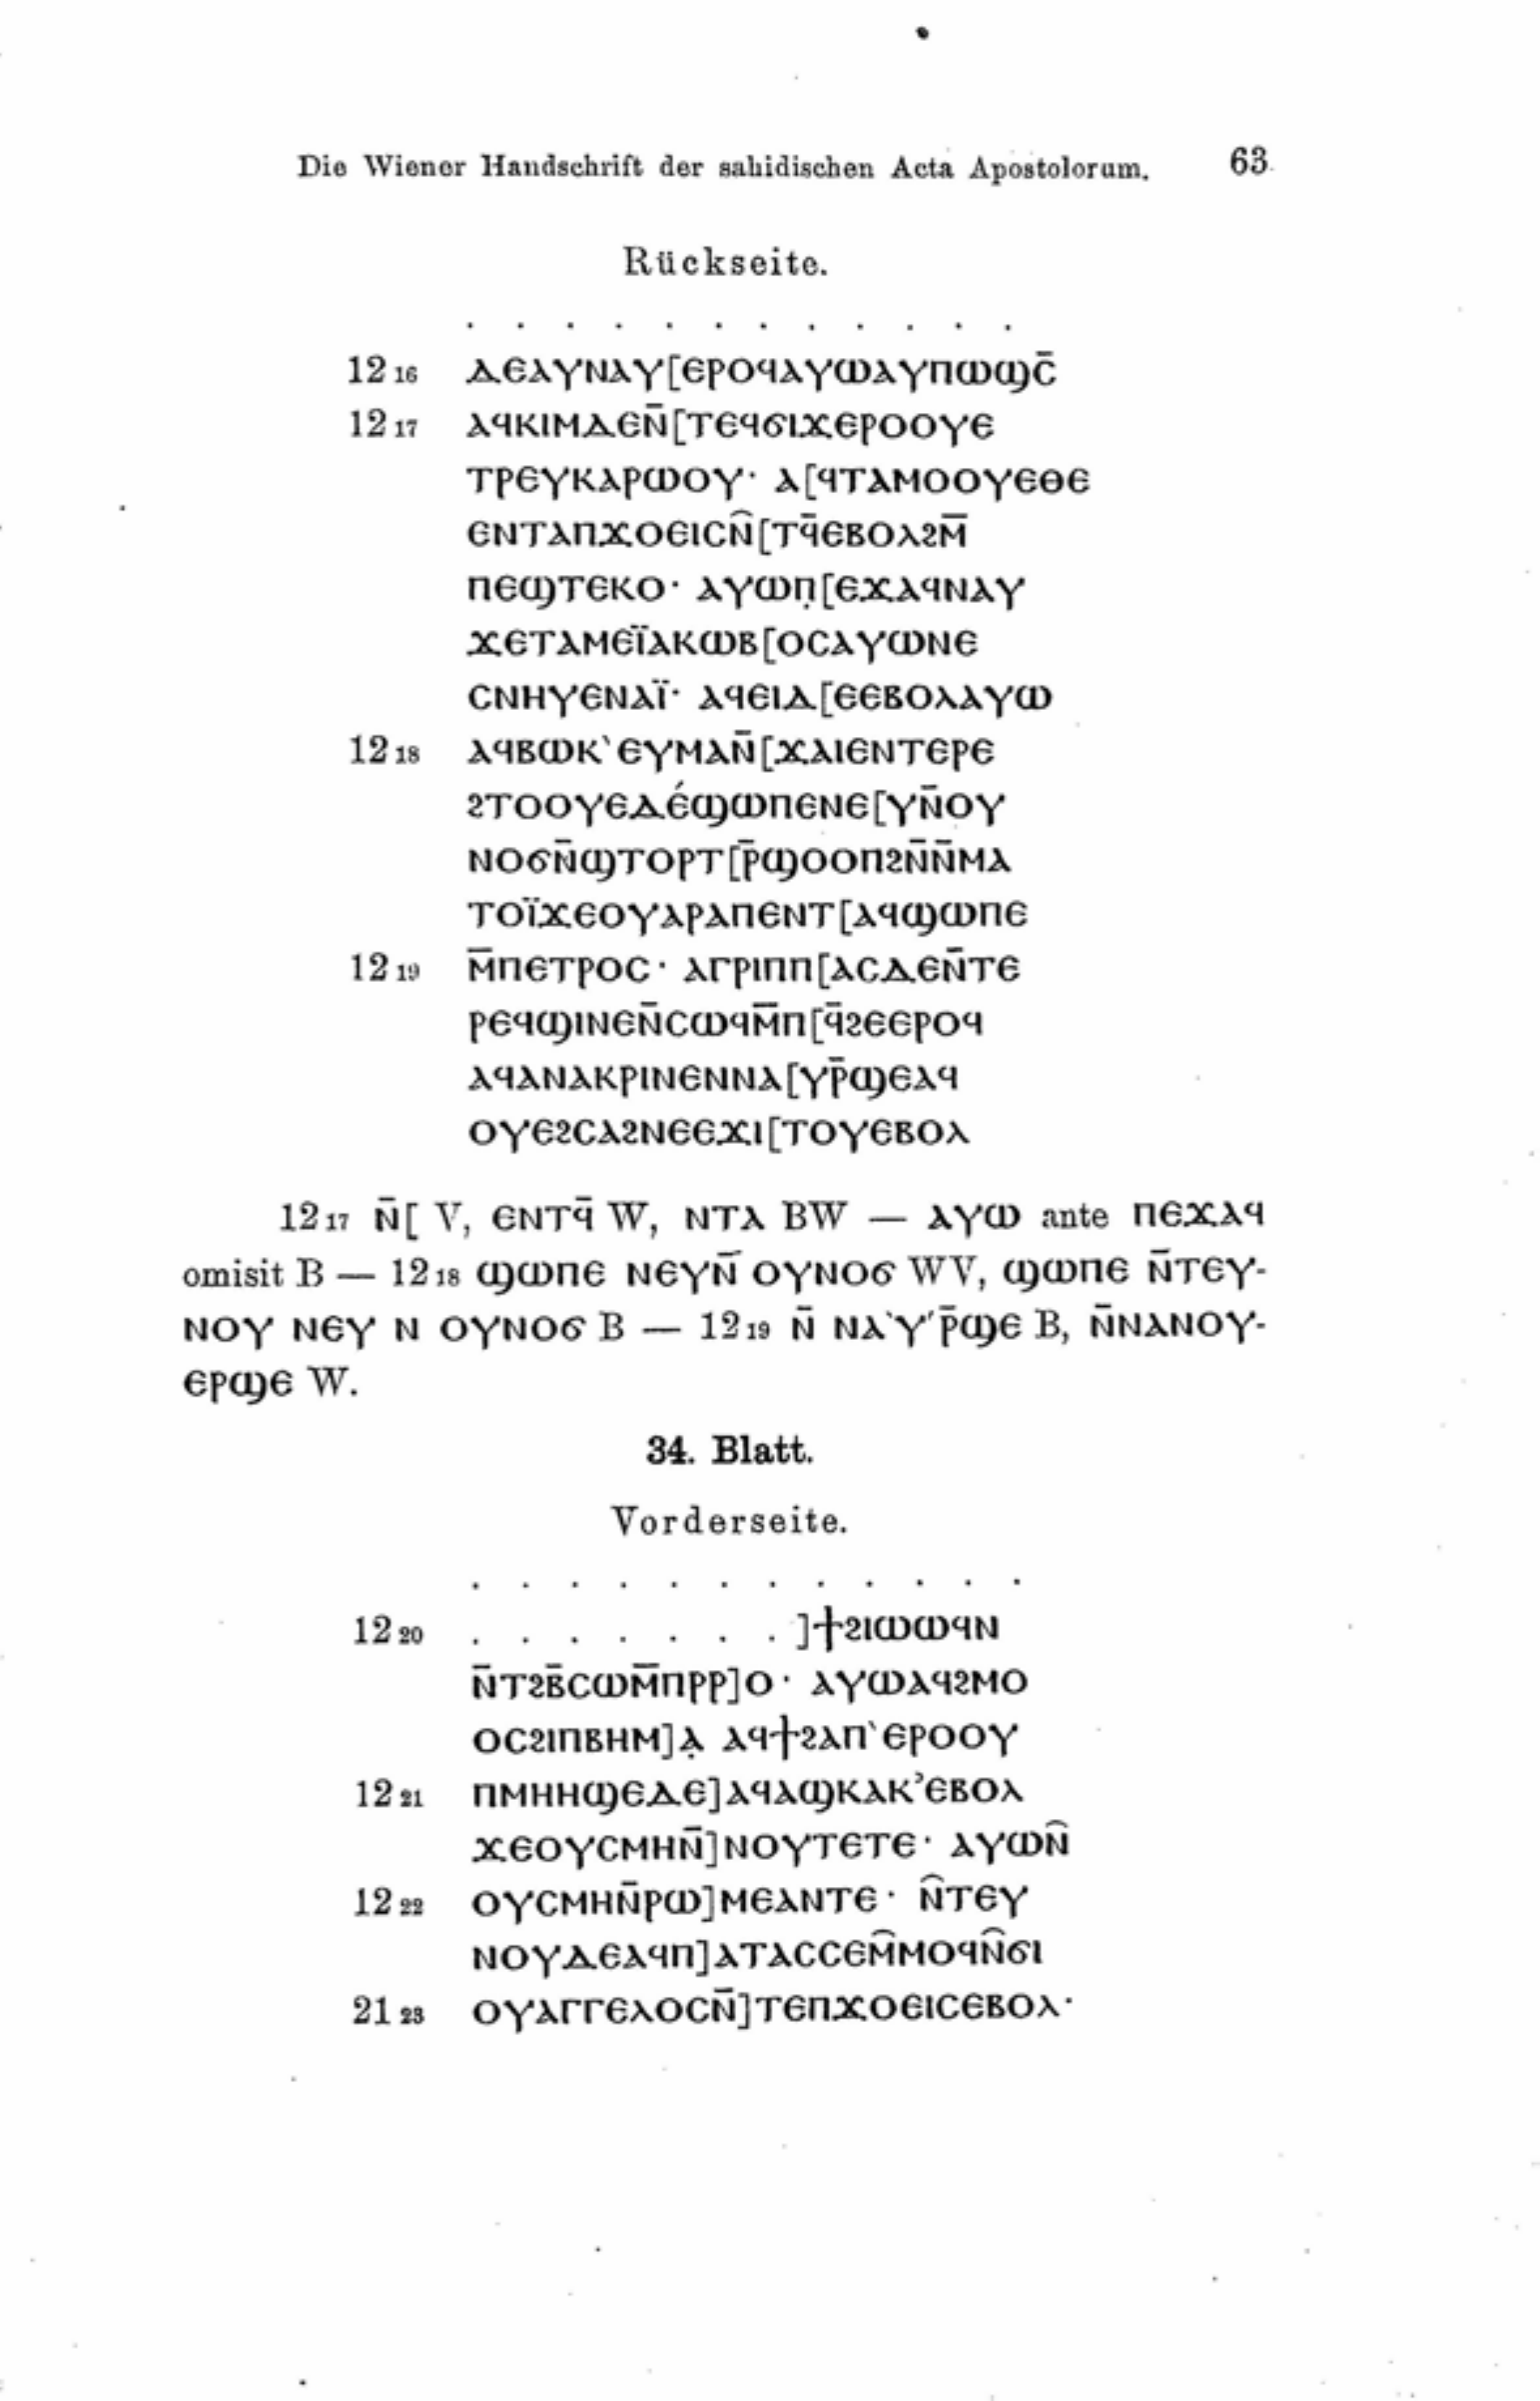 Die Wiener Handschrift der sahidischen Acta Apostolorum. 63
Rückseite.
. . . . . . . . . . . .
12 16 ⲇⲉⲁⲩⲛⲁⲩ[ⲉⲣⲟϥⲁⲩⲱⲁⲩⲡⲱϣⲥ̄
12 17 ⲁϥⲕⲓⲙⲇⲉⲛ̄[ⲧⲉϥϭⲓϫⲉⲣⲟⲟⲩⲉ
ⲧⲣⲉⲩⲕⲁⲣⲱⲟⲩ· ⲁ[ϥⲧⲁⲙⲟⲟⲩⲉⲑⲉ
ⲉⲛⲧⲁⲡϫⲟⲉⲓⲥⲛ̑[ⲧϥ̄ⲉⲃⲟⲗϩⲙ̄
ⲡⲉϣⲧⲉⲕⲟ· ⲁⲩⲱⲡ̣[ⲉϫⲁϥⲛⲁⲩ
ϫⲉⲧⲁⲙⲉⲓ̈ⲁⲕⲱⲃ[ⲟⲥⲁⲩⲱⲛⲉ
ⲥⲛⲏⲩⲉⲛⲁⲓ̈· ⲁϥⲉⲓⲇ[ⲉⲉⲃⲟⲗⲁⲩⲱ
12 18 ⲁϥⲃⲱⲕ`ⲉⲩⲙⲁⲛ̄[ϫⲁⲓⲉⲛⲧⲉⲣⲉ
ϩⲧⲟⲟⲩⲉⲇⲉ́ϣⲱⲡⲉⲛⲉ[ⲩⲛ̄ⲟⲩ
ⲛⲟϭⲛ̄ϣⲧⲟⲣⲧ[ⲣ̄ϣⲟⲟⲡϩⲛ̄ⲛ̄ⲙⲁ
ⲧⲟⲓ̈ϫⲉⲟⲩⲁⲣⲁⲡⲉⲛⲧ[ⲁϥϣⲱⲡⲉ
12 19 ⲙ̄ⲡⲉⲧⲣⲟⲥ· ⲁⲅⲣⲓⲡⲡ[ⲁⲥⲇⲉⲛ̄ⲧⲉ
ⲣⲉϥϣⲓⲛⲉⲛ̄ⲥⲱϥⲙ̄ⲡ[ϥ̄ϩⲉⲉⲣⲟϥ
ⲁϥⲁⲛⲁⲕⲣⲓⲛⲉⲛⲛⲁ[ⲩⲣ̄ϣⲉⲁϥ
ⲟⲩⲉϩⲥⲁϩⲛⲉⲉϫⲓ[ⲧⲟⲩⲉⲃⲟⲗ
12 17 ⲛ̄[ V, ⲉⲛⲧϥ̄ W, ⲛⲧⲁ BW — ⲁⲩⲱ ante ⲡⲉϫⲁϥ
omisit B — 12 18 ϣⲱⲡⲉ ⲛⲉⲩⲛ̄ ⲟⲩⲛⲟϭ WV, ϣⲱⲡⲉ ⲛ̄ⲧⲉⲩ-
ⲛⲟⲩ ⲛⲉⲩ ⲛ ⲟⲩⲛⲟϭ B — 12 19 ⲛ̄ ⲛⲁ`ⲩ´ⲣ̄ϣⲉ B, ⲛ̄ⲛⲁⲛⲟⲩ-
ⲉⲣϣⲉ W.
34. Blatt.
Vorderseite.
. . . . . . . . . . . .
12 20 . . . . . . . ]ϯϩⲓⲱⲱϥⲛ
ⲛ̄ⲧϩⲃ̄ⲥⲱⲙ̄ⲡⲣⲣ]ⲟ· ⲁⲩⲱⲁϥϩⲙⲟ
ⲟⲥϩⲓⲡⲃⲏⲙ]ⲁ̣ ⲁϥϯϩⲁⲡ`ⲉⲣⲟⲟⲩ
12 21 ⲡⲙⲏⲏϣⲉⲇⲉ]ⲁϥⲁϣⲕⲁⲕ’ⲉⲃⲟⲗ
ϫⲉⲟⲩⲥⲙⲏⲛ̄]ⲛⲟⲩⲧⲉⲧⲉ· ⲁⲩⲱⲛ̑
12 22 ⲟⲩⲥⲙⲏⲛ̄ⲣⲱ]ⲙⲉⲁⲛⲧⲉ· ⲛ̑ⲧⲉⲩ
ⲛⲟⲩⲇⲉⲁϥⲡ]ⲁⲧⲁⲥⲥⲉⲙ̑ⲙⲟϥⲛ̑ϭⲓ
21 23 ⲟⲩⲁⲅⲅⲉⲗⲟⲥⲛ̄]ⲧⲉⲡϫⲟⲉⲓⲥⲉⲃⲟⲗ·